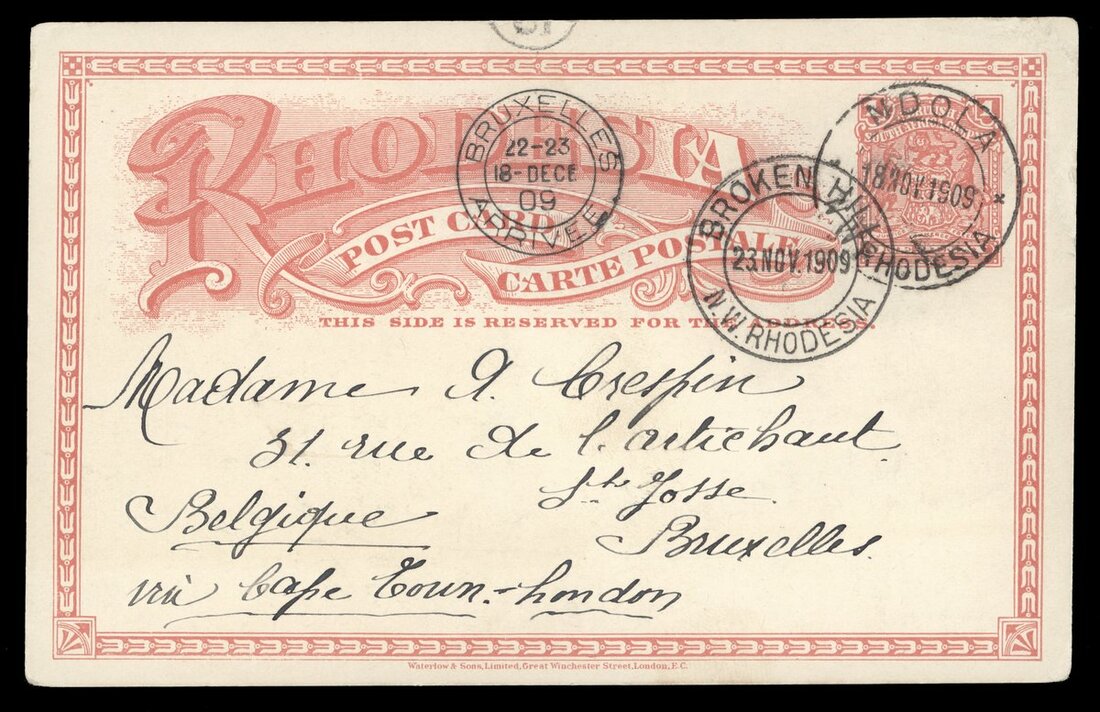 RHODESIA
POST CARD
CARTE POSTALE
THIS SIDE IS RESERVED FOR THE ADDRESS.
BRUXELLES
22-23
18-DECE
09
ARRIVEE
NDOLA
18 NOV. 1909
N.W. RHODESIA
BROKEN HILL
23 NOV. 1909
N.W. RHODESIA
Madame A. Crespin
31. rue de l'artichaut.
St. Josse.
Belgique
Bruxelles.
via Cape Town.-London
Waterlow & Sons, Limited, Great Winchester Street, London, E.C.